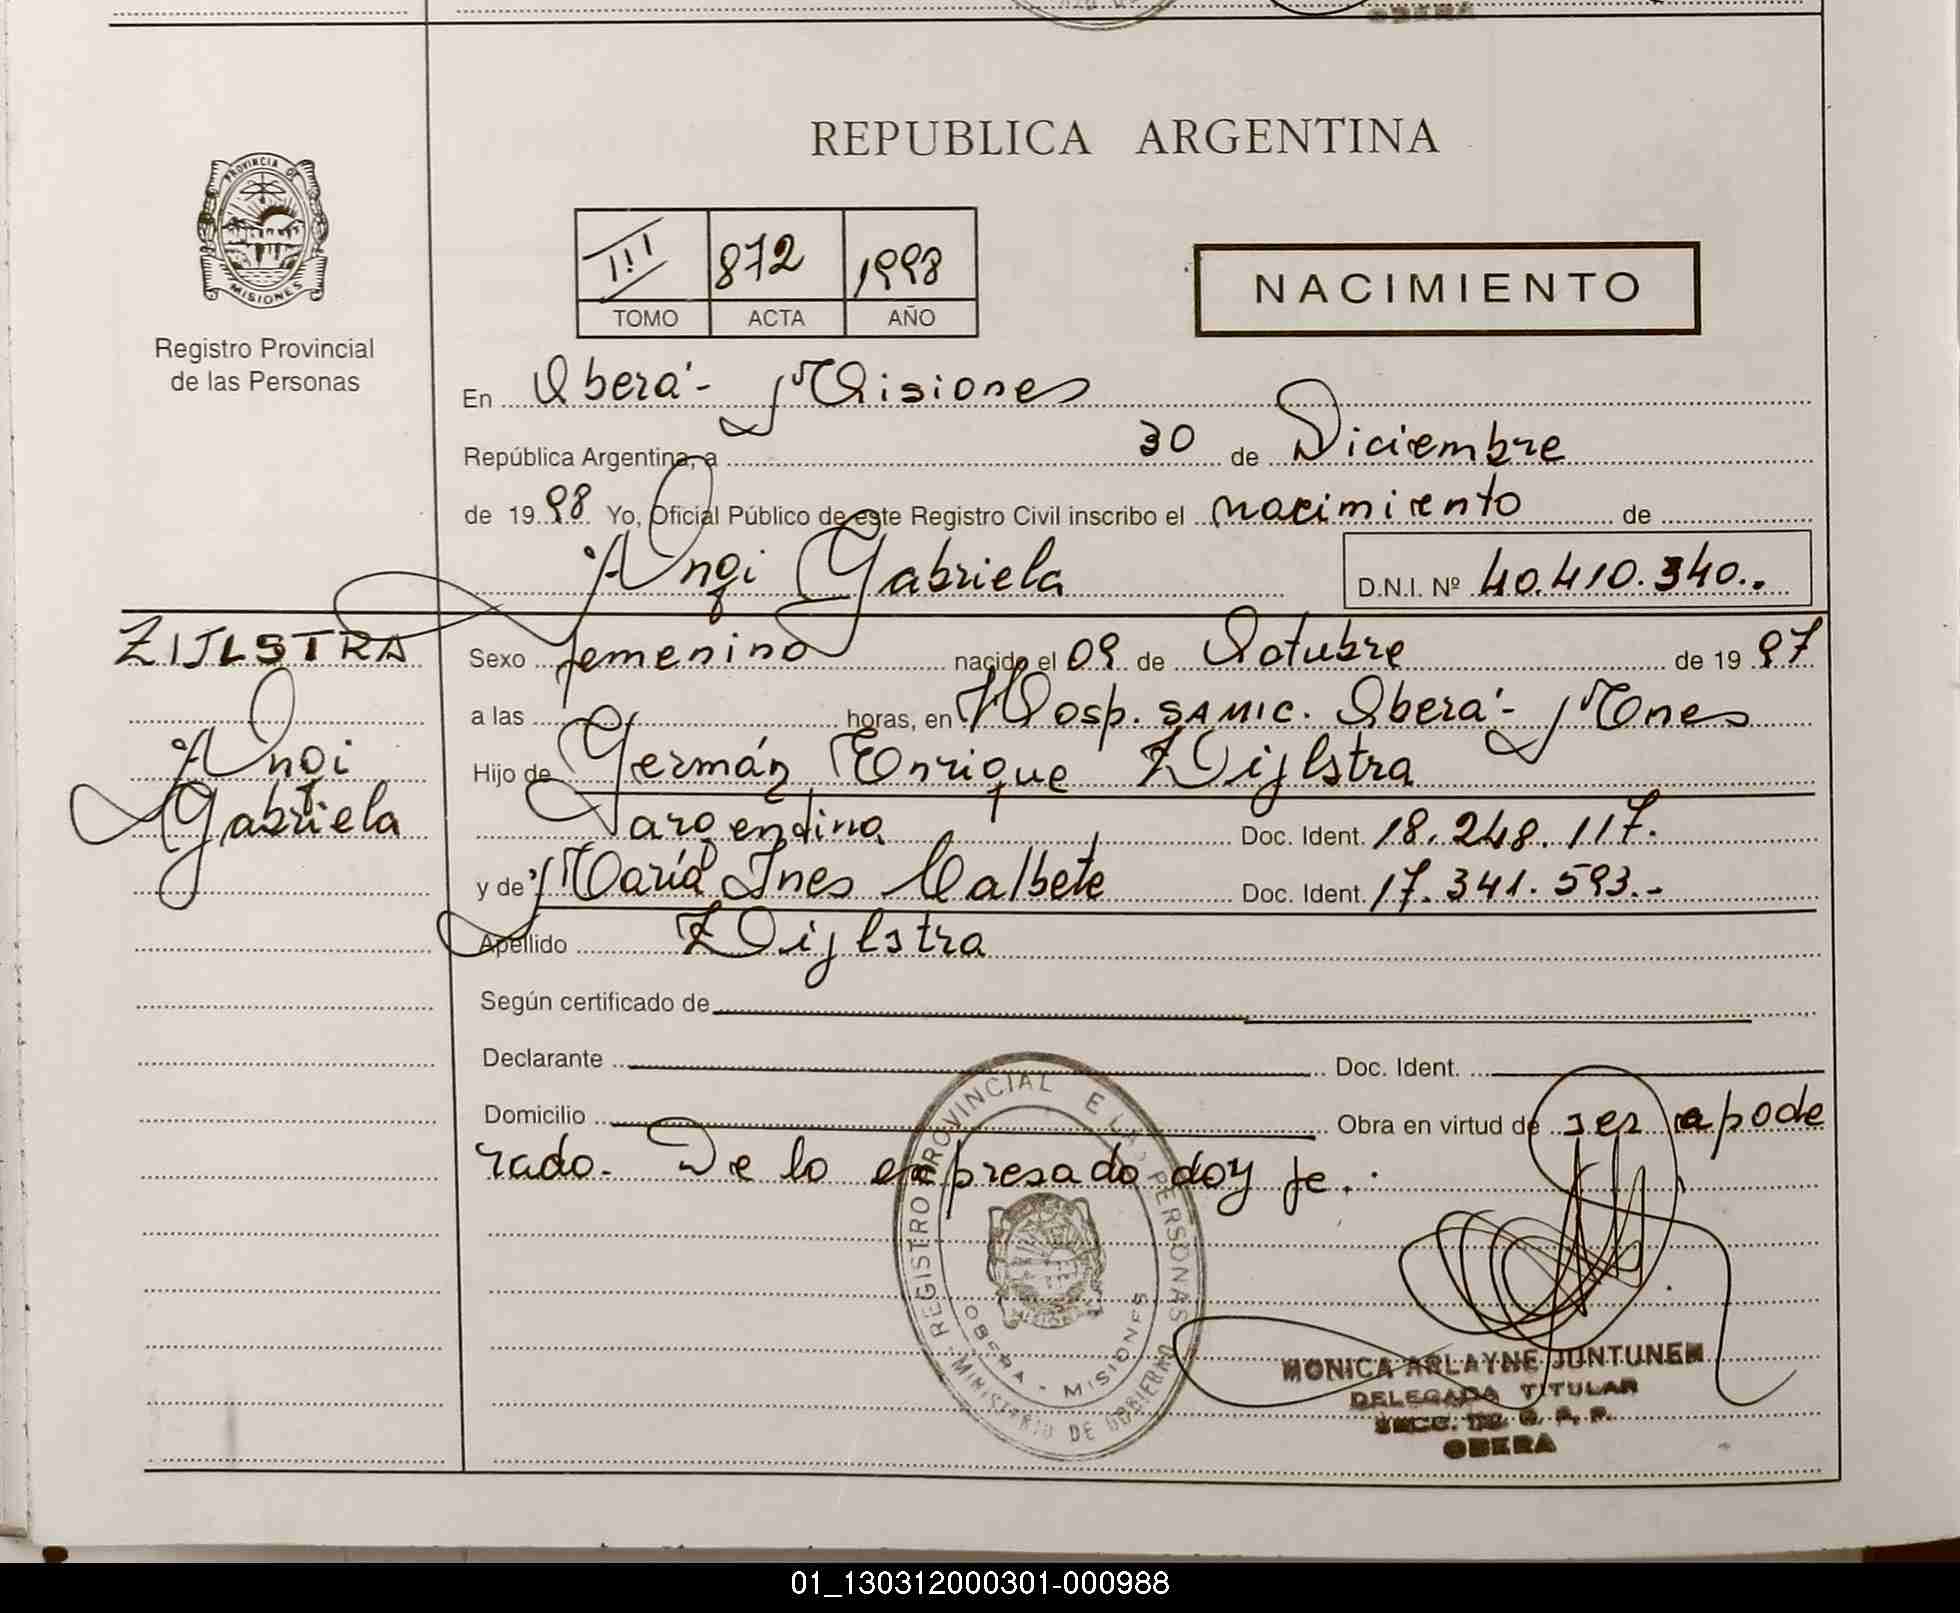 OBERA
REPUBLICA ARGENTINA
PROVINCIA DE
MISIONES
Registro Provincial
de las Personas
III 872 1998
TOMO ACTA AÑO
NACIMIENTO
En Oberá- Misiones
República Argentina, a 30 de Diciembre
de 19 98 Yo, Oficial Público de este Registro Civil inscribo el nacimiento de
Angi Gabriela D.N.I. Nº 40.410.340..
ZIJLSTRA
Angi
Gabriela
Sexo femenino nacido el 09 de Octubre de 19 97
a las horas, en Hosp. SAMIC. Oberá- Mnes
Hijo de Germán Enrique Zijlstra
argentino Doc. Ident. 18.248.117.
y de María Ines Calbete Doc. Ident. 17.341.593.-
Apellido Zijlstra
Según certificado de
Declarante Doc. Ident.
Domicilio Obra en virtud de ser apode
rado. De lo expresado doy fe.
REGISTRO PROVINCIAL E LAS PERSONAS
OBERA - MISIONES
MINISTERIO DE GOBIERNO
MONICA ARLAYNE JUNTUNEN
DELEGADA TITULAR
OBERA
01_130312000301-000988